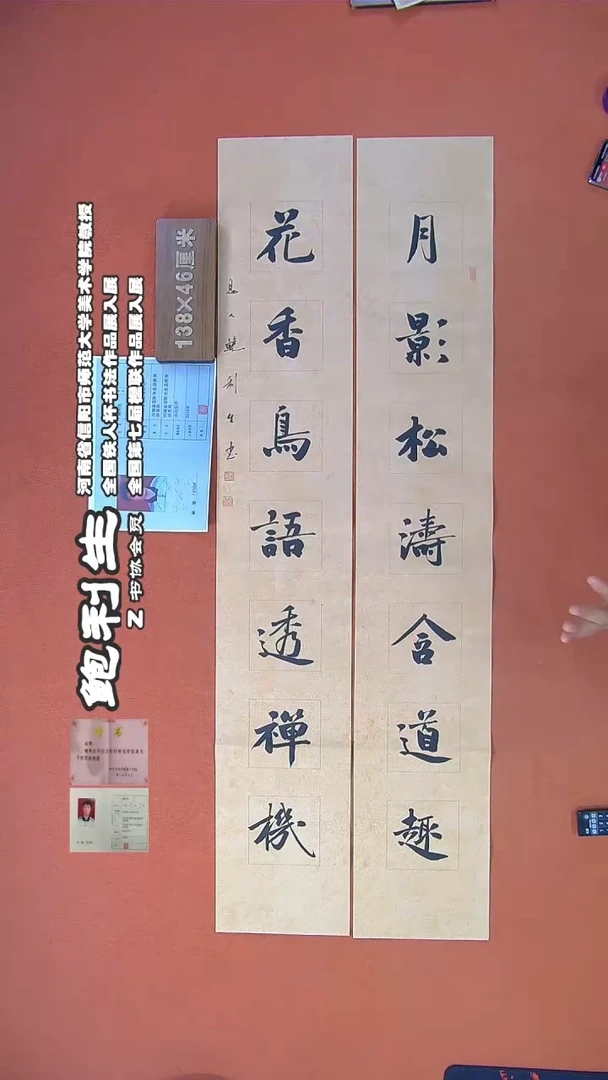 月影松濤含道趣
花香鳥語透禪機
息人鮑利生书
138×46厘米
河南省信阳市师范大学美术学院教授
全国铁人杯书法作品展入展
全国第七届楹联作品展入展
鲍利生
Z 书协会员